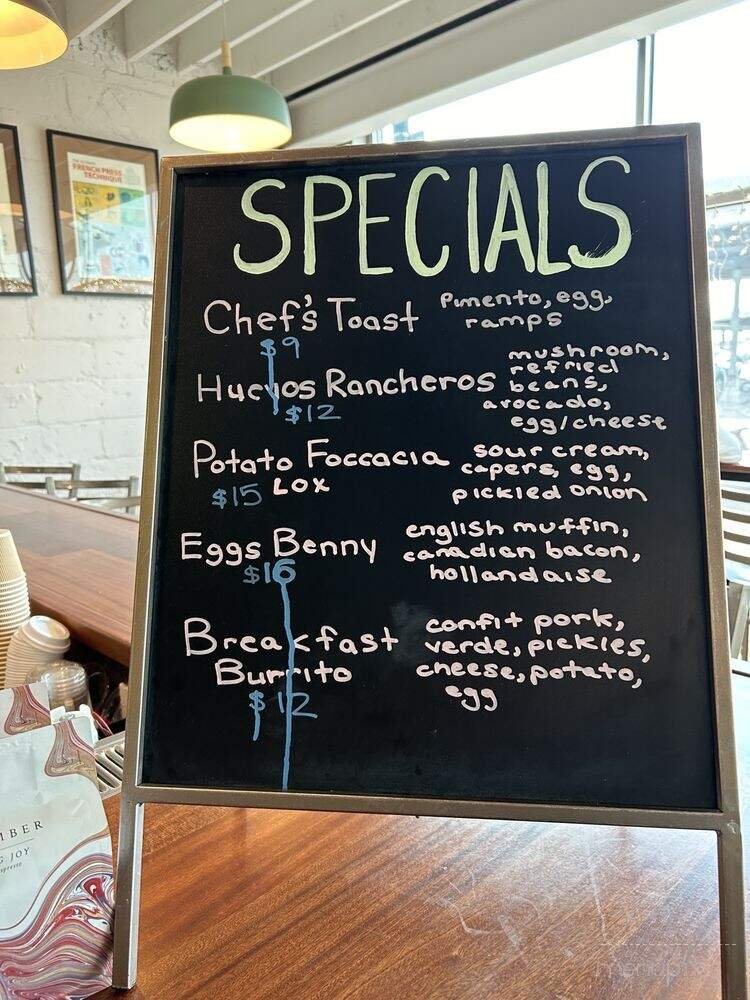 FRENCH PRESS
TECHNIQUE
SPECIALS
Chef's Toast
Pimento, egg,
ramps
$9
Huevos Rancheros
mushroom,
refried
beans,
avocado,
egg/cheese
$12
Potato Foccacia
LOX
sour cream,
capers, egg,
pickled onion
$15
Eggs Benny
english muffin,
canadian bacon,
hollandaise
$16
Breakfast
Burrito
confit pork,
verde, pickles,
cheese, potato,
egg
$12
JOY
menupix